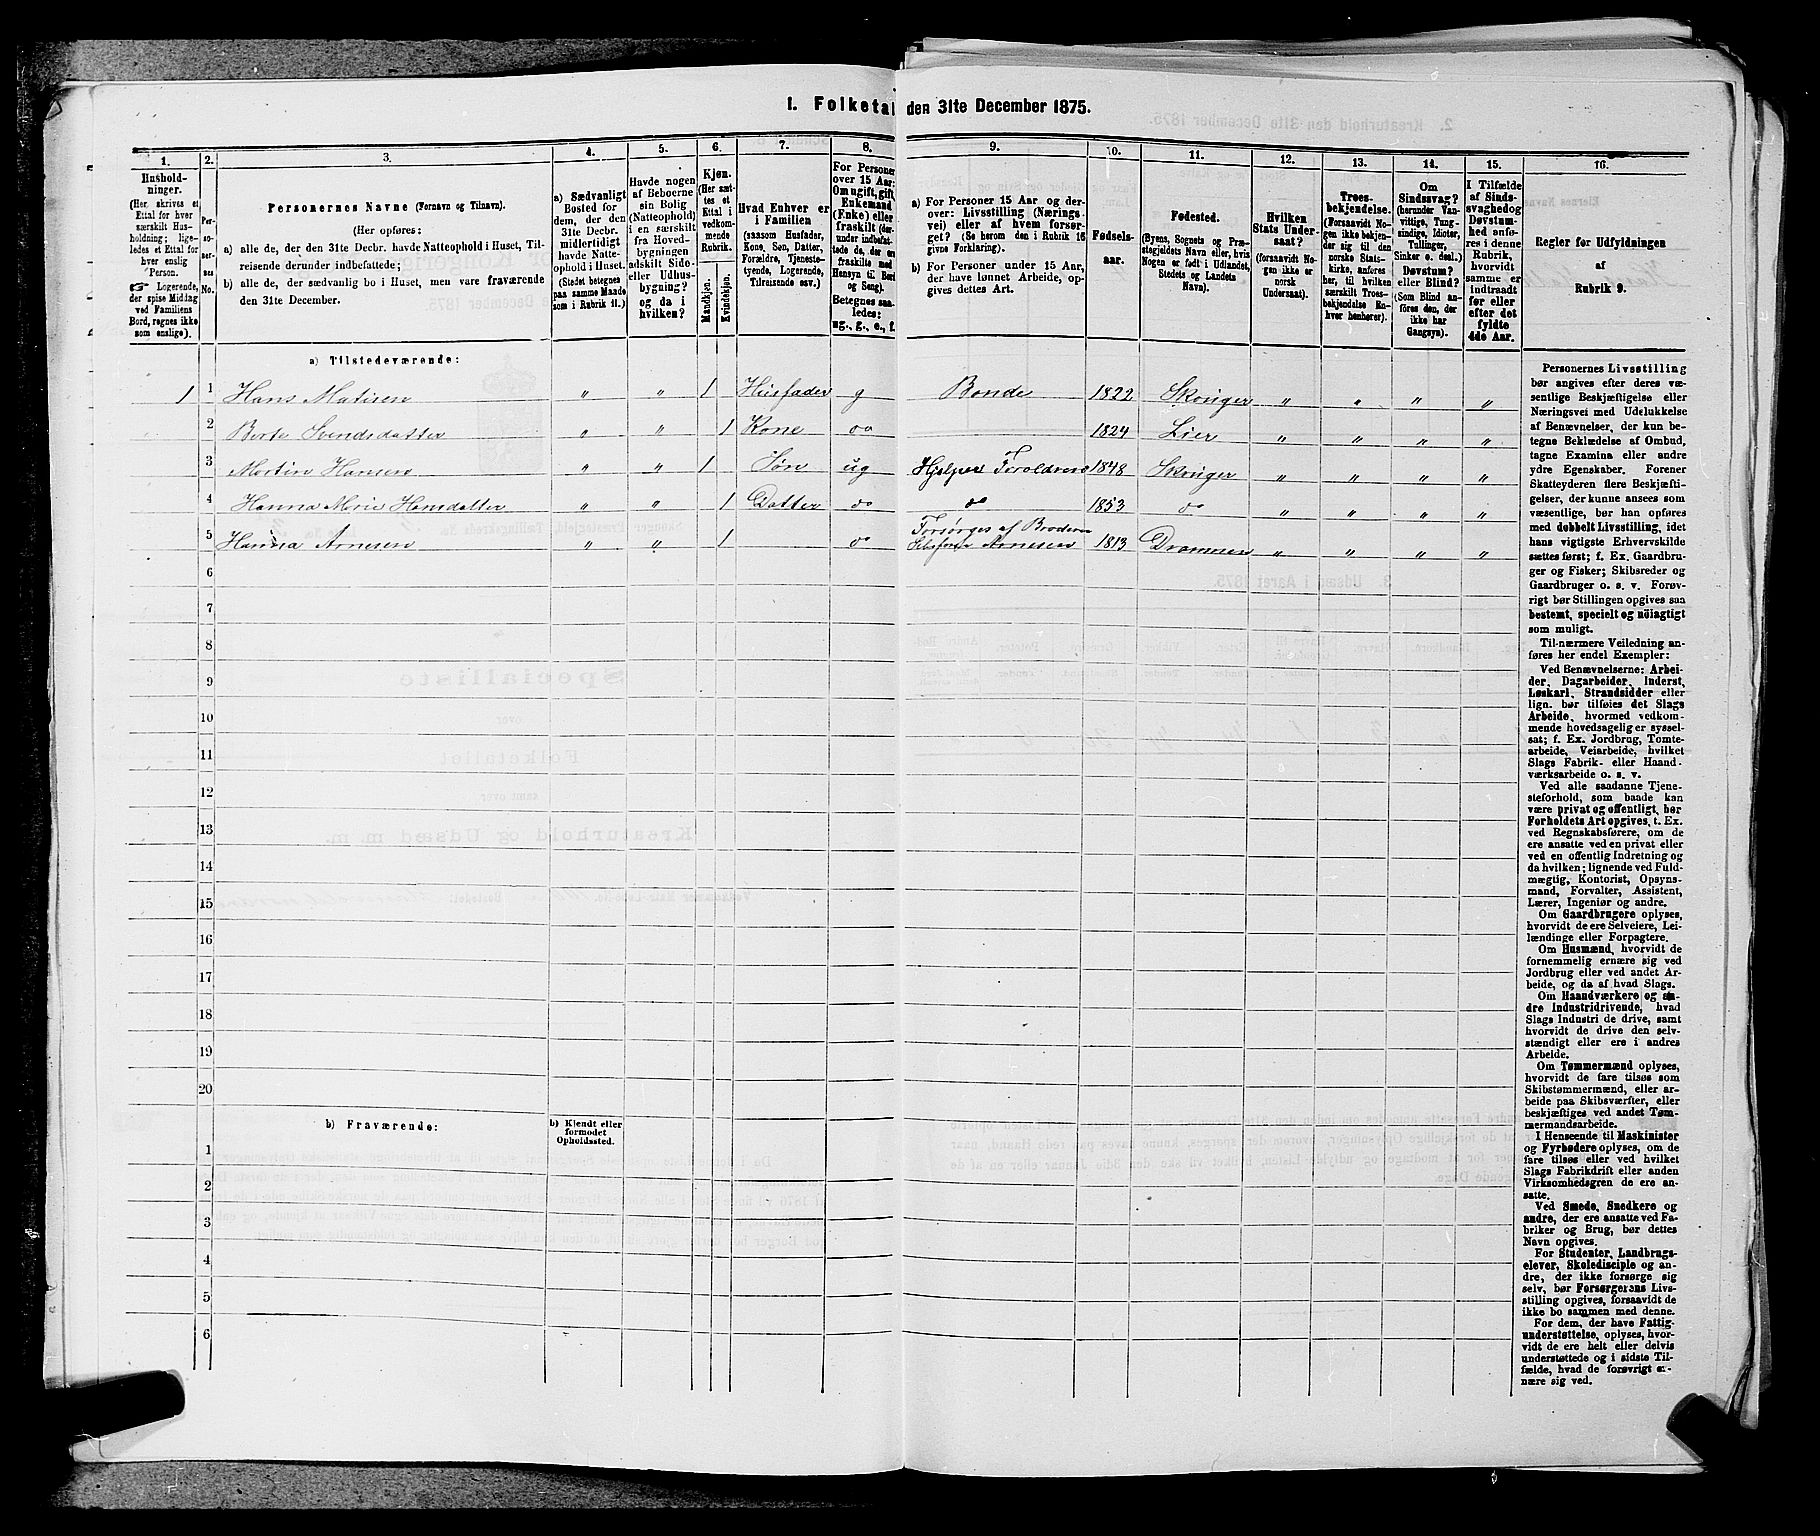 1. Folketal den 31te December 1875.
1. 2. 3. 4. 5. 6. 7. 8. 9. 10. 11. 12. 13. 14. 15. 16.
Husholdninger.
(Her skrives et
Ettal for hver
særskilt Hus-
holdning; lige-
ledes et Ettal for
hver enslig
Person.
☞ Logerende,
der spise Middag
ved Familiens
Bord, regnes ikke
som enslige).
Personernes No.
Personernes Navne (Fornavn og Tilnavn).
(Her opføres:
a) alle de, der den 31te Decbr. havde Natteophold i Huset, Til-
reisende derunder indbefattede;
b) alle de, der sædvanlig bo i Huset, men vare fraværende
den 31te December.
a) Sædvanligt
Bosted for
dem, der den
31te Decbr.
midlertidigt
havde Natte-
ophold i Huset.
(Stedet betegnes
paa samme Maade
som i Rubrik 11.)
Havde nogen
af Beboerne
sin Bolig
(Natteophold)
i en særskilt
fra Hoved-
bygningen
adskilt Side-
eller Udhus-
bygning?
og da i
hvilken?
Kjøn.
(Her sæt-
tes et
Ettal i
vedkom-
mende
Rubrik.
Mandkjøn.
Kvindekjøn.
Hvad Enhver er
i Familien
(saasom Husfader,
Kone, Søn, Datter,
Forældre, Tjeneste-
tyende, Logerende,
Tilreisende osv.)
For Personer
over 15 Aar:
Om ugift, gift,
Enkemand
(Enke) eller
fraskilt
Betegnes saa-
ledes:
ug., g., e., f.
a) For Personer 15 Aar og der-
over: Livsstilling (Nærings-
vei) eller af hvem forsør-
get? (Se herom den i Rubrik 16
givne Forklaring).
b) For Personer under 15 Aar,
der have lønnet Arbeide, op-
gives dettes Art.
Fødsels-
aar.
Fødested.
(Byens, Sognets og Præ-
stegjeldets Navn eller, hvis
Nogen er født i Udlandet,
Stedets og Landets
Navn).
Hvilken
Stats Under-
saat?
(forsaavidt No-
gen ikke er
norsk
Undersaat).
Troes-
bekjendelse.
(Forsaavidt No-
gen ikke bekjen-
der sig til den
norske Stats-
kirke, anføres
her, til hvilken
særskilt Troes-
bekjendelse En-
hver henhører).
Om
Sindssvag?
(herunder Van-
vittige, Tung-
sindige, Idioter,
Tullinger,
Sinker o. desl.)
Døvstum?
eller Blind?
(Som Blind an-
føres den, der
ikke har
Gangsyn).
I Tilfælde
af Sinds-
svaghed og
Døvstum-
hed anfø-
res i denne
Rubrik,
hvorvidt
samme er
indtraadt
før eller
efter det
fyldte
4de Aar.
Regler for Udfyldningen
af
Rubrik 9.
a) Tilstedeværende:
1 1 Hans Matisen " " 1 Husfader g Bonde 1822 Skouger " " " "
2 Berte Svendsdatter " " 1 Kone do 1824 Lier " " " "
3 Martin Hansen " " 1 Søn ug Hjelper Foreldrene 1848 Skouger " " " "
4 Hanna Marie Hansdatter " " 1 Datter do do 1853 do " " " "
5 Hanna Arnesen " " 1 do Forsørges af Broderen
Arnesen 1813 Drammen " " " "
6
7
8
9
10
11
12
13
14
15
16
17
18
19
20
b) Fraværende:
b) Kjendt eller
formodet
Opholdssted.
1
2
3
4
5
6
Personernes Livsstilling
bør angives efter deres væ-
sentlige Beskjæftigelse eller
Næringsvei med Udelukkelse
af Benævnelser, der kun be-
tegne Beklædelse af Ombud,
tagne Examina eller andre
ydre Egenskaber. Forener
Skatteyderen flere Beskjæfti-
gelser, der kunne ansees som
væsentlige, bør han opføres
med dobbelt Livsstilling, idet
hans vigtigste Erhvervskilde
sættes først; f. Ex. Gaardbru-
ger og Fisker; Skibsreder og
Gaardbruger o. s. v. Forøv-
rigt bør Stillingen opgives saa
bestemt, specielt og nöiagtigt
som muligt.
Til nærmere Veiledning an-
føres her endel Exempler:
Ved Benævnelserne: Arbei-
der, Dagarbeider, Inderst,
Løskarl, Strandsidder eller
lign. bør tilføies det Slags
Arbeide, hvormed vedkom-
mende hovedsagelig er syssel-
sat; f. Ex. Jordbrug, Tomte-
arbeide, Veiarbeide, hvilket
Slags Fabrik- eller Haand-
værksarbeide o. s. v.
Ved alle saadanne Tjene-
steforhold, som baade kan
være privat og offentligt, bør
Forholdets Art opgives, t. Ex.
ved Regnskabsførere, om de
ere ansatte ved en privat eller
ved en offentlig Indretning og
da hvilken; lignende ved Fuld-
mægtig, Kontorist, Opsyns-
mand, Forvalter, Assistent,
Lærer, Ingeniør og andre.
Om Gaardbrugere oplyses,
hvorvidt de ere Selveiere, Lei-
lændinge eller Forpagtere.
Om Husmænd, hvorvidt de
fornemmelig ernære sig ved
Jordbrug eller ved andet Ar-
beide, og da af hvad Slags.
Om Haandværkere og an-
dre Industridrivende, hvad
Slags Industri de drive, samt
hvorvidt de drive den selv-
stændigt eller ere i andres
Arbeide.
Om Tømmermænd oplyses,
hvorvidt de fare tilsøs som
Skibstømmermænd, eller ar-
beide paa Skibsværfter, eller
beskjæftiges ved andet Tøm-
mermandsarbeide.
I Henseende til Maskinister
og Fyrbødere oplyses, om de
fare tilsøs eller ved hvilket
Slags Fabrikdrift eller anden
Virksomhedsgren de ere an-
satte.
Ved Smede, Snedkere og
andre, der ere ansatte ved Fa-
briker og Brug, bør dettes
Navn opgives.
For Studenter, Landbrugs-
elever, Skoledisciple og an-
dre, der ikke forsørge sig
selv, bør Forsørgerens Livs-
stilling opgives, forsaavidt de
ikke bo sammen med denne.
For dem, der have Fattig-
understøttelse, oplyses, hvor-
vidt de ere helt eller delvis
understøttede og i sidste Til-
fælde, hvad de forøvrigt er-
nære sig ved.